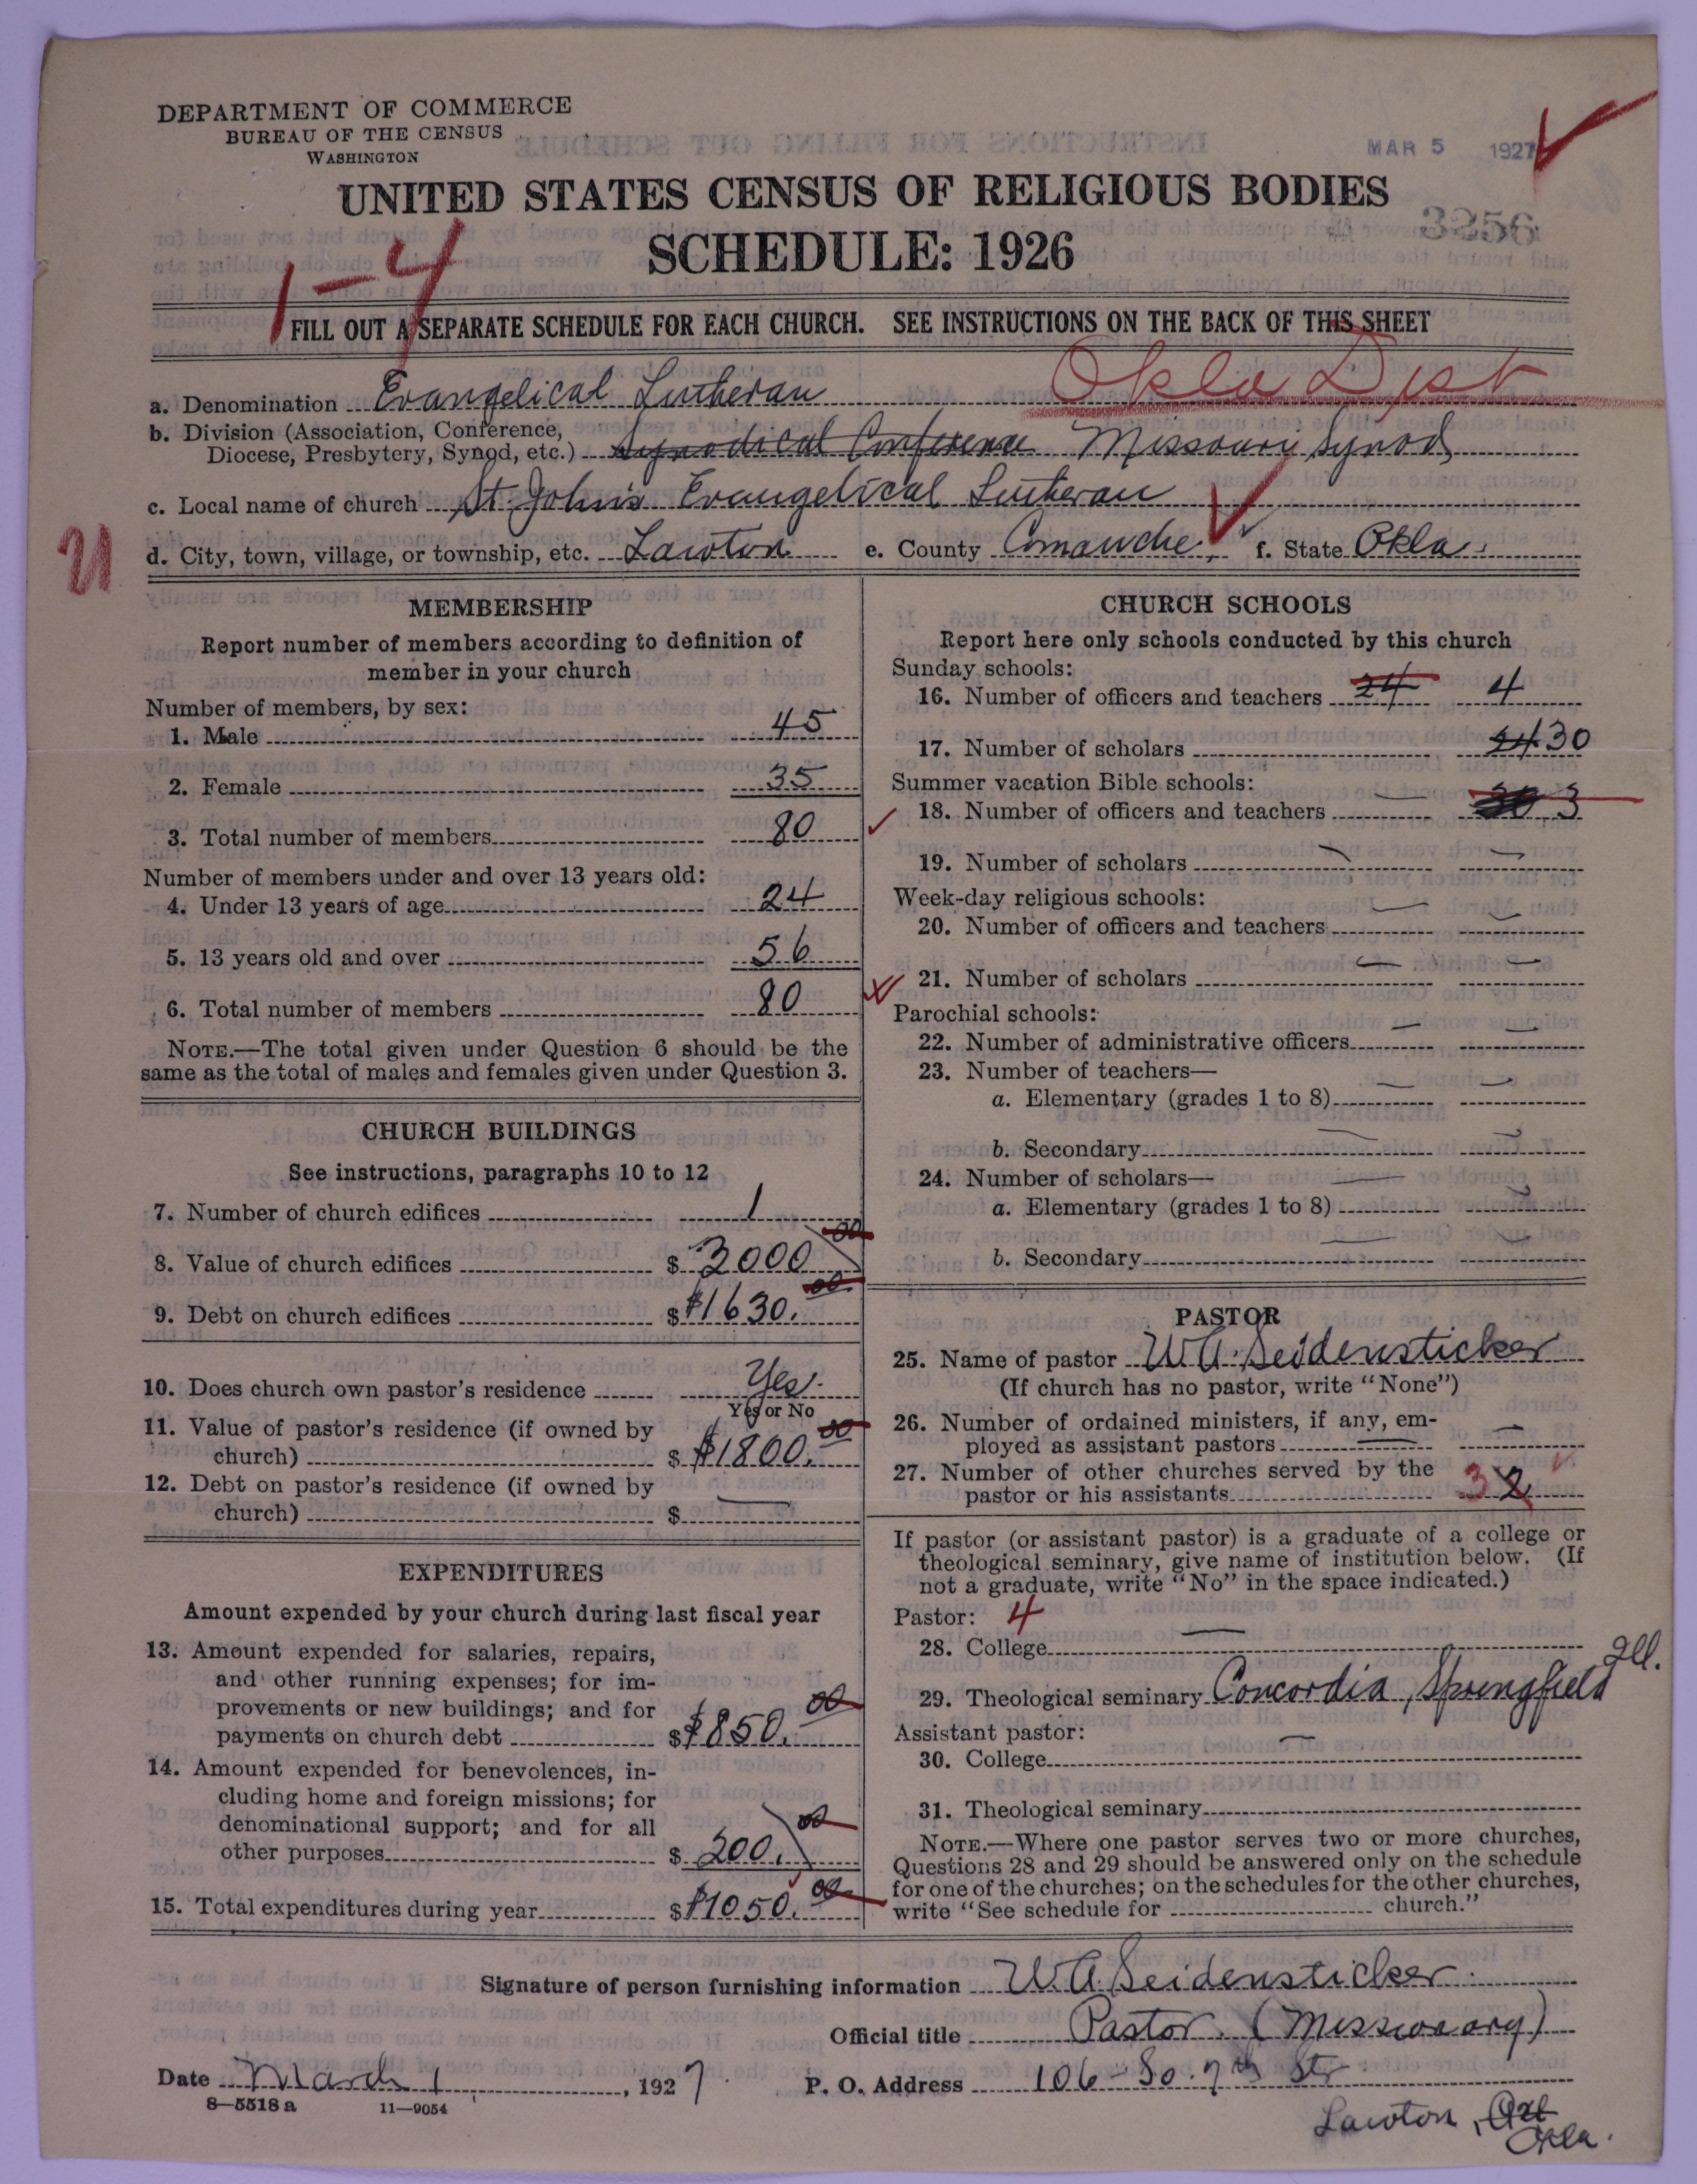 DEPARTMENT OF COMMERCE
BUREAU OF THE CENSUS
WASHINGTON
MAR 5 1927
UNITED STATES CENSUS OF RELIGIOUS BODIES
3256
SCHEDULE: 1926
1-4
FILL OUT A SEPARATE SCHEDULE FOR EACH CHURCH. SEE INSTRUCTIONS ON THE BACK OF THIS SHEET
Okla Dist
a. Denomination Evangelical Lutheran
b. Division (Association, Conference,
Diocese, Presbytery, Synod, etc.) Synodical Conference Missouri Synod
c. Local name of church St. John's Evangelical Lutheran
d. City, town, village, or township, etc. Lawton e. County Comanche, f. State Okla.
MEMBERSHIP
Report number of members according to definition of
member in your church
Number of members, by sex:
1. Male 45
2. Female 35
3. Total number of members 80
Number of members under and over 13 years old:
4. Under 13 years of age 24
5. 13 years old and over 56
6. Total number of members 80
NOTE.—The total given under Question 6 should be the
same as the total of males and females given under Question 3.
CHURCH BUILDINGS
See instructions, paragraphs 10 to 12
7. Number of church edifices 1
8. Value of church edifices $ 3000 00
9. Debt on church edifices $ $1630. 00
10. Does church own pastor's residence Yes.
Yes or No
11. Value of pastor's residence (if owned by
church) $ $1800. 00
12. Debt on pastor's residence (if owned by
church) $ —
EXPENDITURES
Amount expended by your church during last fiscal year
13. Amount expended for salaries, repairs,
and other running expenses; for im-
provements or new buildings; and for
payments on church debt $ $850. 00
14. Amount expended for benevolences, in-
cluding home and foreign missions; for
denominational support; and for all
other purposes $ 200. 00
15. Total expenditures during year $ $1050. 00
CHURCH SCHOOLS
Report here only schools conducted by this church
Sunday schools:
16. Number of officers and teachers 24 4
17. Number of scholars 30
Summer vacation Bible schools:
18. Number of officers and teachers — 30 3
19. Number of scholars — —
Week-day religious schools:
20. Number of officers and teachers — —
21. Number of scholars — —
Parochial schools:
22. Number of administrative officers — —
23. Number of teachers—
a. Elementary (grades 1 to 8) — —
b. Secondary — —
24. Number of scholars—
a. Elementary (grades 1 to 8) — —
b. Secondary — —
PASTOR
25. Name of pastor W. A. Seidensticker
(If church has no pastor, write "None")
26. Number of ordained ministers, if any, em-
ployed as assistant pastors — —
27. Number of other churches served by the
pastor or his assistants 3 2
If pastor (or assistant pastor) is a graduate of a college or
theological seminary, give name of institution below. (If
not a graduate, write "No" in the space indicated.)
Pastor: 4
28. College —
29. Theological seminary Concordia, Springfield Ill.
Assistant pastor:
30. College —
31. Theological seminary
NOTE.—Where one pastor serves two or more churches,
Questions 28 and 29 should be answered only on the schedule
for one of the churches; on the schedules for the other churches,
write "See schedule for church."
Signature of person furnishing information W. A. Seidensticker.
Official title Pastor. (Missionary)
Date March 1, 1927 P. O. Address 106 - So. 7th St
8—5518 a 11—9054
Lawton,
Okla.